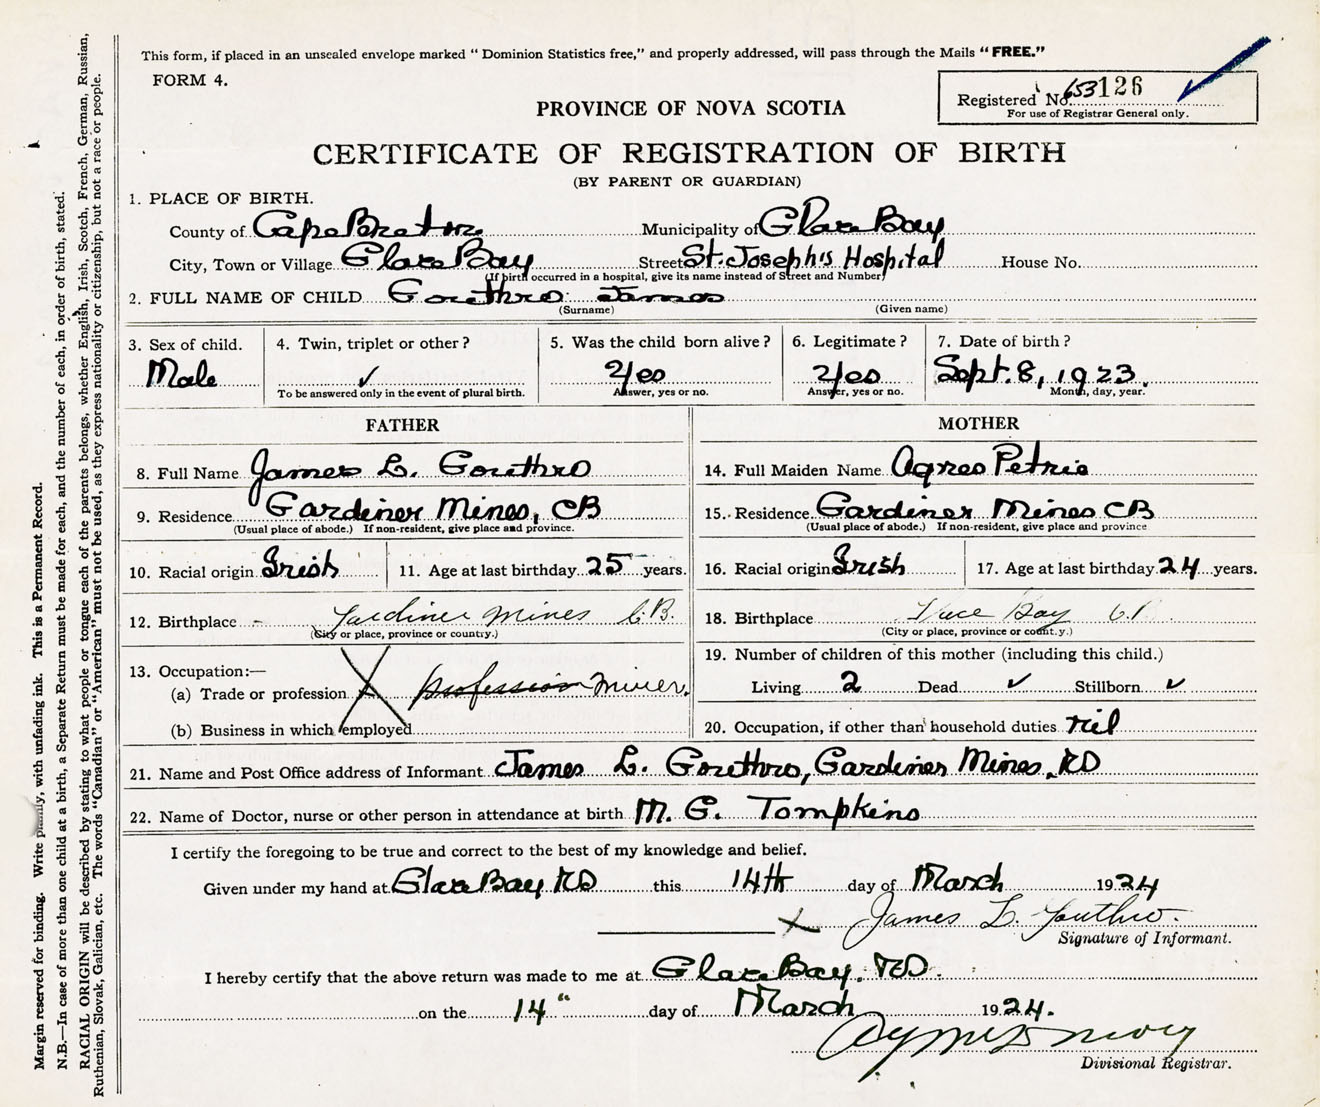 This form, if placed in an unsealed envelope marked “ Dominion Statistics free,” and properly addressed, will pass through the Mails “ FREE.”
FORM 4.
Registered No. 653126
For use of Registrar General only.
PROVINCE OF NOVA SCOTIA
CERTIFICATE OF REGISTRATION OF BIRTH
(BY PARENT OR GUARDIAN)
1. PLACE OF BIRTH.
County of Cape Breton Municipality of Glace Bay
City, Town or Village Glace Bay Street St. Joseph's Hospital House No.
(If birth occurred in a hospital, give its name instead of Street and Number)
2. FULL NAME OF CHILD Gouthro James
(Surname) (Given name)
3. Sex of child. 4. Twin, triplet or other? 5. Was the child born alive? 6. Legitimate? 7. Date of birth?
Male ✓ Yes Yes Sept. 8, 1923.
To be answered only in the event of plural birth. Answer, yes or no. Answer, yes or no. Month, day, year.
FATHER
8. Full Name James L. Gouthro
9. Residence Gardiner Mines, CB
(Usual place of abode.) If non-resident, give place and province.
10. Racial origin Irish 11. Age at last birthday 25 years.
12. Birthplace Gardiner Mines C.B.
(City or place, province or country.)
13. Occupation:—
(a) Trade or profession profession Miner.
(b) Business in which employed
MOTHER
14. Full Maiden Name Agnes Petrie
15. Residence Gardiner Mines CB
(Usual place of abode.) If non-resident, give place and province
16. Racial origin Irish 17. Age at last birthday 24 years.
18. Birthplace Bay
(City or place, province or count.y.)
19. Number of children of this mother (including this child.)
Living 2 Dead ✓ Stillborn ✓
20. Occupation, if other than household duties nil
21. Name and Post Office address of Informant James L. Gouthro, Gardiner Mines,
22. Name of Doctor, nurse or other person in attendance at birth M. G. Tompkins
I certify the foregoing to be true and correct to the best of my knowledge and belief.
Given under my hand at Glace Bay this 14th day of March 1924
X James L. Gouthro.
Signature of Informant.
I hereby certify that the above return was made to me at Glace Bay.
on the 14" day of March 1924.
Divisional Registrar.
Margin reserved for binding. Write plainly, with unfading ink. This is a Permanent Record.
N.B.—In case of more than one child at a birth, a Separate Return must be made for each, and the number of each, in order of birth, stated.
RACIAL ORIGIN will be described by stating to what people or tongue each of the parents belongs, whether English, Irish, Scotch, French, German, Russian,
Ruthenian, Slovak, Galician, etc. The words “Canadian” or “American” must not be used, as they express nationality or citizenship, but not a race or people.